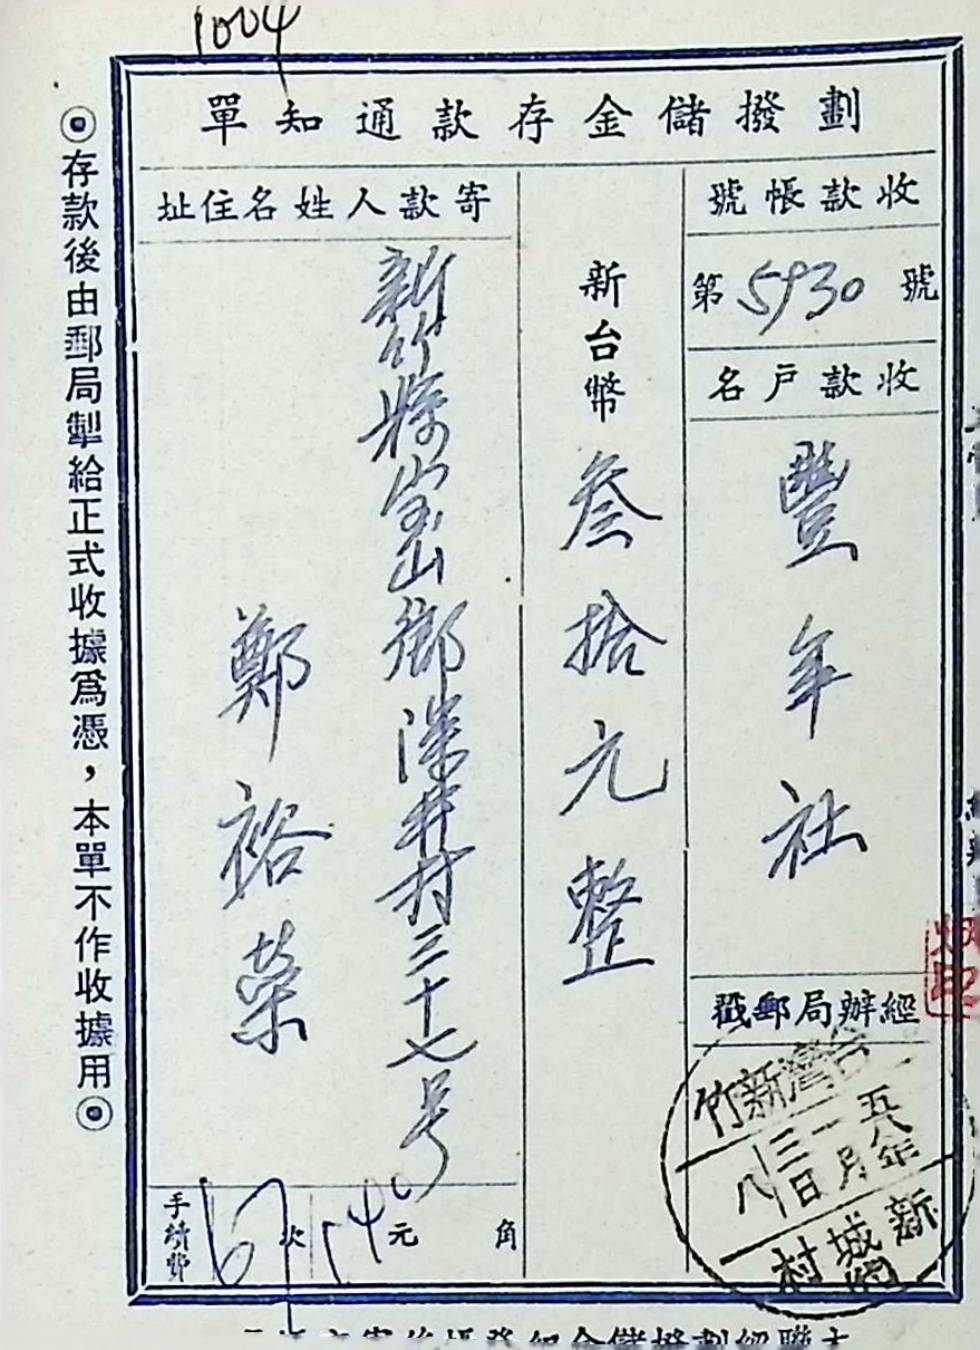 1004
劃撥儲金存款通知單
收款帳號
第5930號
收款戶名
豐年社
經辦局郵戳
台灣新竹
五八年
一月
三日
八
新城
村
新台幣叁拾元整
寄款人姓名住址
新竹縣宝山鄉深井村三十七号
鄭裕榮
手續費
次
元
角
◉存款後由郵局掣給正式收據為憑，本單不作收據用◉